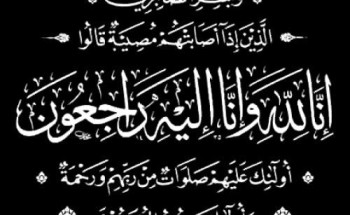 وبشر الصابرين
الَّذِينَ إِذَا أَصَابَتْهُمْ مُصِيبَةٌ قَالُوا
إِنَّا لِلَّهِ وَإِنَّا إِلَيْهِ رَاجِعُونَ
أُولَٰئِكَ عَلَيْهِمْ صَلَوَاتٌ مِنْ رَبِّهِمْ وَرَحْمَةٌ